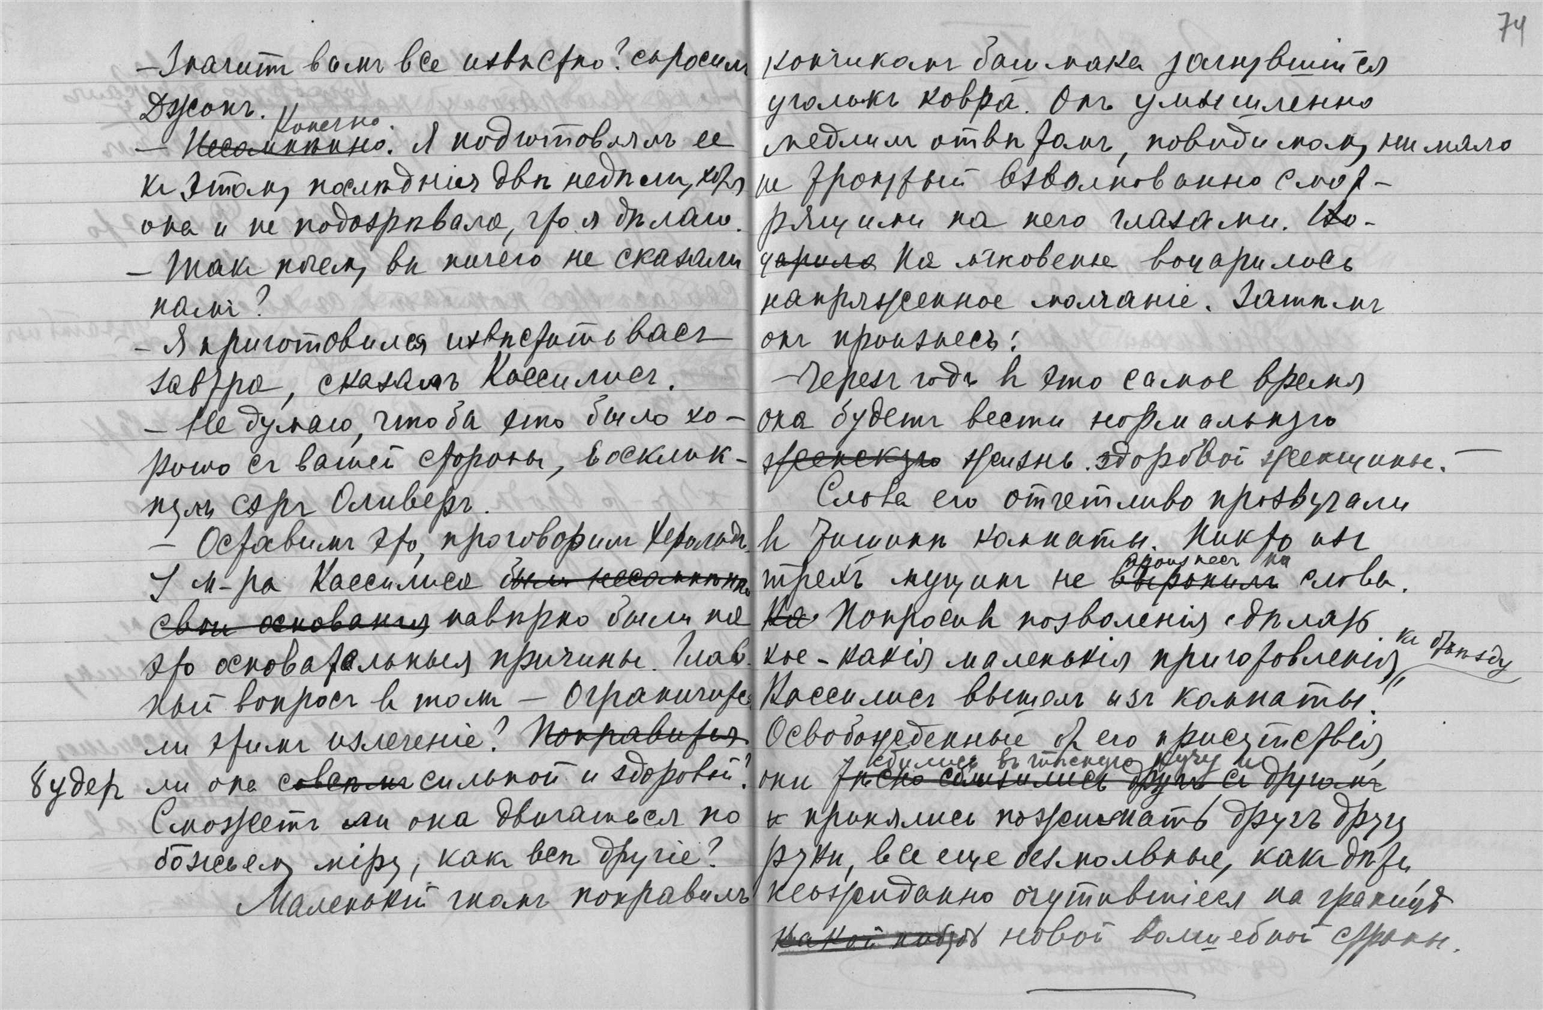 — Значитъ вамъ все извѣстно? спросилъ
Джонъ.
Конечно.
— Несомнѣнно. Я подготовлялъ ее
къ этому послѣднія двѣ недѣли, хотя
она и не подозрѣвала, что я дѣлаю.
— Такъ почему вы ничего не сказали
намъ?
— Я приготовился извѣстить васъ
завтра, сказалъ Кассилисъ.
— Не думаю, чтобы это было хо-
рошо съ вашей стороны, восклик
нулъ сэръ Оливеръ.
— Оставимъ это, проговорилъ Херольдъ.
У м-ра Кассилиса были несомнѣнно
свои основанія навѣрно были на
это основательныя причины. Глав
ный вопросъ въ томъ — Ограничится
ли этимъ излеченіе? Поправится
Будетъ ли она совсѣмъ сильной и здоровой?
Сможетъ ли она двигаться по
божьему міру, какъ всѣ другіе?
Маленькій гномъ поправилъ
74
кончикомъ башмака загнувшійся
уголокъ ковра. Онъ умышленно
медлилъ отвѣтомъ, повидимому, нимало
не тронутый взволнованно смот-
рящими на него глазами. Во-
царило На мгновенье воцарилось
напряженное молчаніе. Затѣмъ
онъ произнесъ:
— Черезъ годъ въ это самое время
она будетъ вести нормальную
женскую жизнь здоровой женщины. —
Слова его отчетливо прозвучали
въ тишинѣ комнаты. Никто изъ
произнесъ ни
трехъ мущинъ не выронилъ слова.
На Попросивъ позволенія сдѣлать
кое-какія маленькія приготовленія къ отъѣзду
Кассилисъ вышелъ изъ комнаты.
Освобожденные отъ его присутствія,
сбились въ тѣсную кучу и
они тѣсно сблизились другъ съ другомъ
и принялись пожимать другъ другу
руки, все еще безмолвные, какъ дѣти,
неожиданно очутившіеся на границѣ
какой нибудь новой волшебной страны.